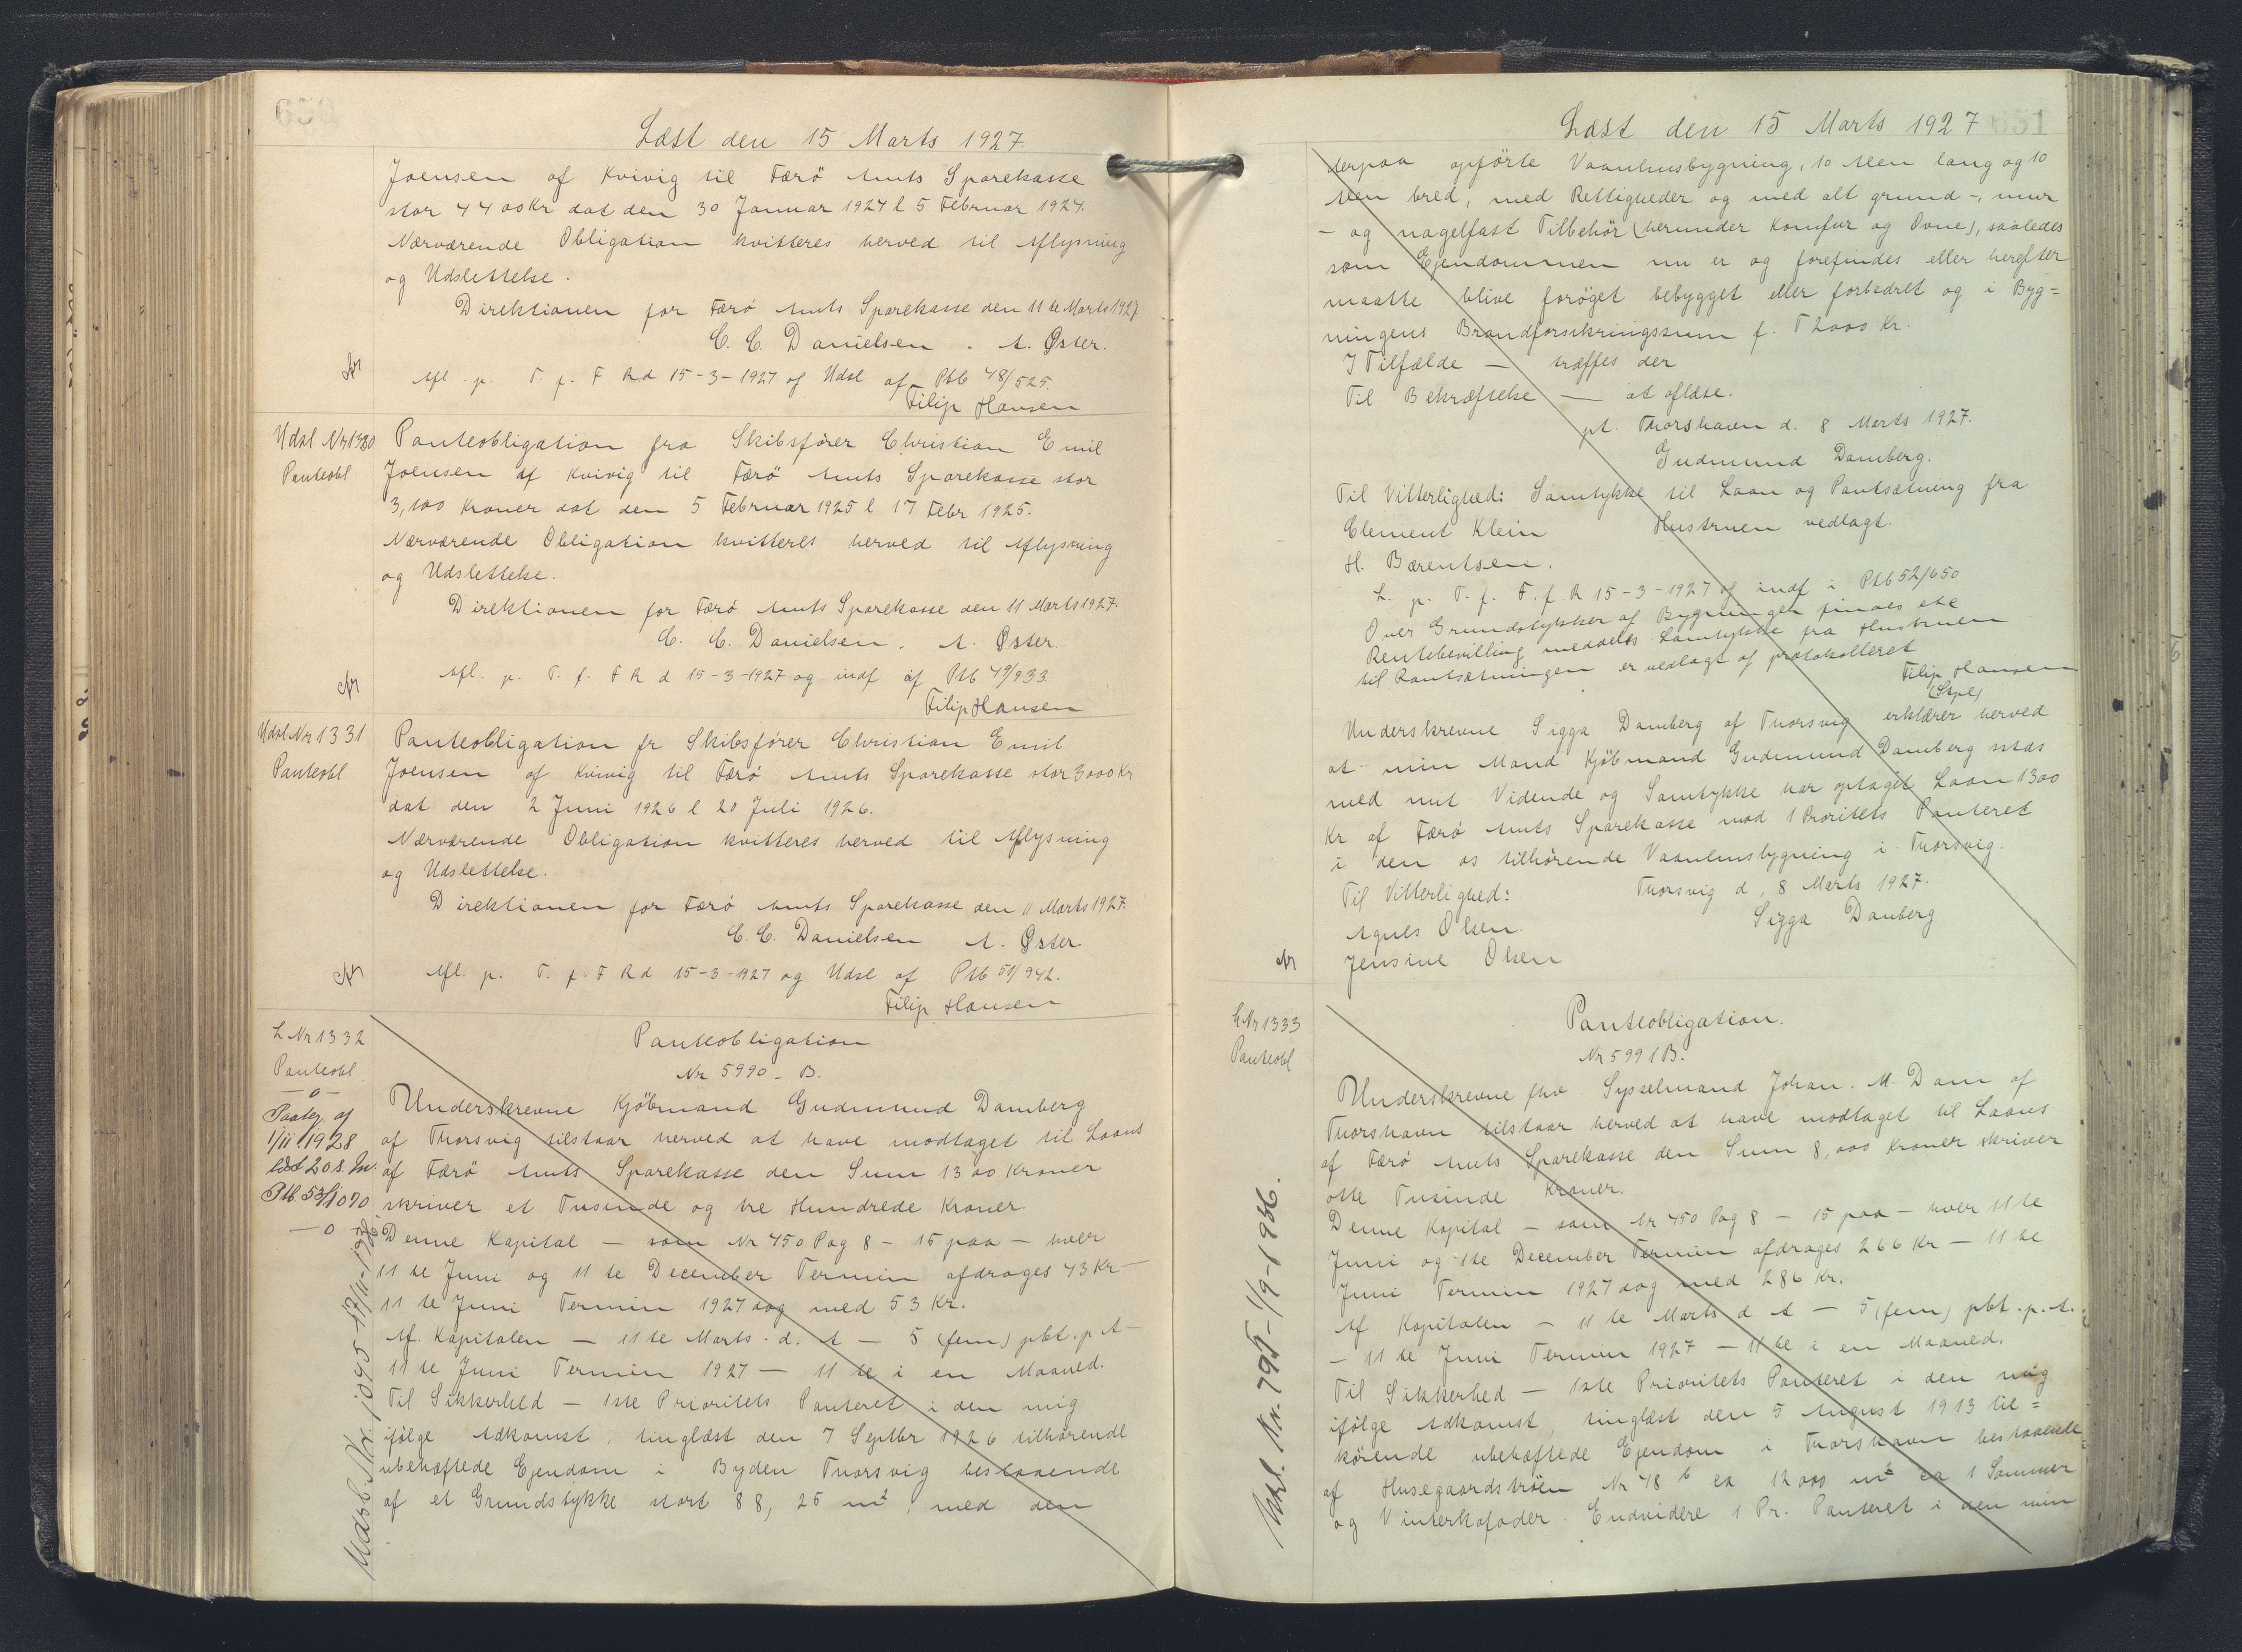 650
Læst den 15 Marts 1927.
Joensen af Kvivig til Færø Amts Sparekasse
stor 4400 Kr dat den 30 Januar 1924 l 5 Februar 1924.
Nærværende Obligation kvitteres herved til Aflysning
og Udslettelse.
Direktionen for Færø Amts Sparekasse den 11te Marts 1927
C. C. Danielsen. A. Øster.
Afl. p. T. f. F R d 15-3-1927 og Udsl af Ptb 48/525.
Filip Hansen
Udsl Nr 1330
Panteobl
Panteobligation fra Skibsfører Christian Emil
Joensen af Kvivig til Færø Amts Sparekasse stor
3,100 Kroner dat den 5 Februar 1925 l 17 Febr 1925.
Nærværende Obligation kvitteres herved til Aflysning
og Udslettelse.
Direktionen for Færø Amts Sparekasse den 11 Marts 1927.
C. C. Danielsen. A. Øster.
Afl. p. T. f. F R d 15-3-1927 og indf af Ptb 49/933.
Filip Hansen
Udsl Nr 1331
Panteobl
Panteobligation fr Skibsfører Christian Emil
Joensen af Kvivig til Færø Amts Sparekasse stor 3000 Kr
dat den 2 Juni 1926 l 20 Juli 1926.
Nærværende Obligation kvitteres herved til Aflysning
og Udslettelse.
Direktionen for Færø Amts Sparekasse den 11 Marts 1927.
C. C. Danielsen A. Øster
Afl. p. T. f. F R d 15-3-1927 og Udsl af Ptb 51/942.
Filip Hansen
L Nr 1332
Panteobl
—o—
Paateg. af
1/11 1928
læst 20 s. M.
Ptb. 53/1070
—o
Panteobligation
Nr 5990 - B.
Underskrevne Kjøbmand Gudmund Damberg
af Thorsvig tilstaar herved at have modtaget til Laans
af Færø Amts Sparekasse den Sum 1300 Kroner
skriver et Tusinde og tre Hundrede Kroner
Denne Kapital — som Nr 450 Pag 8 - 15 paa — hver
11te Juni og 11te December Termin afdrages 43 Kr —
11te Juni Termin 1927 dog med 53 Kr.
Af Kapitalen — 11te Marts. d. A — 5 (fem) pCt. p A —
11te Juni Termin 1927 — 11te i en Maaned.
Til Sikkerhed — 1ste Prioritets Panteret i den mig
ifølge Adkomst, tinglæst den 7 Septbr 1926 tilhørende
ubehæftede Ejendom i Byden Thorsvig bestaaende
af et Grundstykke stort 88,25 m², med den
Læst den 15 Marts 1927
651
derpaa opførte Vaanhusbygning, 10 Alen lang og 10
Alen bred, med Rettigheder og med alt grund-, mur
- og nagelfast Tilbehør (herunder Komfur og Ovne), saaledes
som Ejendommen nu er og forefindes eller herefter
maatte blive forøget bebygget eller forbedret og i Byg=
ningens Brandforsikringssum f. T 2000 Kr.
I Tilfælde — træffes der
Til Bekræftelse — at aflæse.
pt. Thorshavn d. 8 Marts 1927.
Gudmund Damberg.
Til Vitterlighed: Samtykke til Laan og Pantsætning fra
Clement Klein Hustruen vedlagt.
H. Bærentsen.
L. p. T. f. F. f R 15-3-1927 og indf i Ptb 52/650
Over Grundstykket af Bygningen findes ete
Rentebevilling meddelts Samtykke fra Hustruen
til Pantsætningen er vedlagt og protokolleret
Filip Hansen
(Stpl)
Underskrevne Sigga Damberg af Thorsvig erklærer herved
at min Mand Kjøbmand Gudmund Damberg stds
med mit Vidende og Samtykke har optaget Laan 1300
Kr af Færø Amts Sparekasse mod 1 Prioritets Panteret
i den os tilhørende Vaanhusbygning i Thorsvig.
Til Vitterlighed: Thorsvig d. 8 Marts 1927.
Agnes Olsen. Sigga Danberg
Jensine Olsen
L Nr 1333
Panteobl
Panteobligation.
Nr 5991 B.
Underskrevne fhv. Sysselmand Johan. M. Dam af
Thorshavn tilstaar herved at have modtaget til Laans
af Færø Amts Sparekasse den Sum 8,000 Kroner skriver
otte Tusinde Kroner.
Denne Kapital — som Nr 450 Pag 8 - 15 paa — hver 11te
Juni og 11te December Termin afdrages 266 Kr — 11te
Juni Termin 1927 dog med 286 Kr.
Af Kapitalen — 11te Marts d A — 5 (fem) pCt. p. A.
— 11te Juni Termin 1927 — 11te i en Maaned.
Til Sikkerhed — 1ste Prioritets Panteret i den mig
ifølge Adkomst, tinglæst den 5 August 1913 til=
hørende ubehæftede Ejendom i Thorshavn bestaaende
af Husegaardstrøen Nr 48 b ca 12000 m² ca 1 Sommer
og Vinterkofoder. Endvidere 1 Pr. Panteret i den min
Udsl. Nr. 795-1/9-1936.